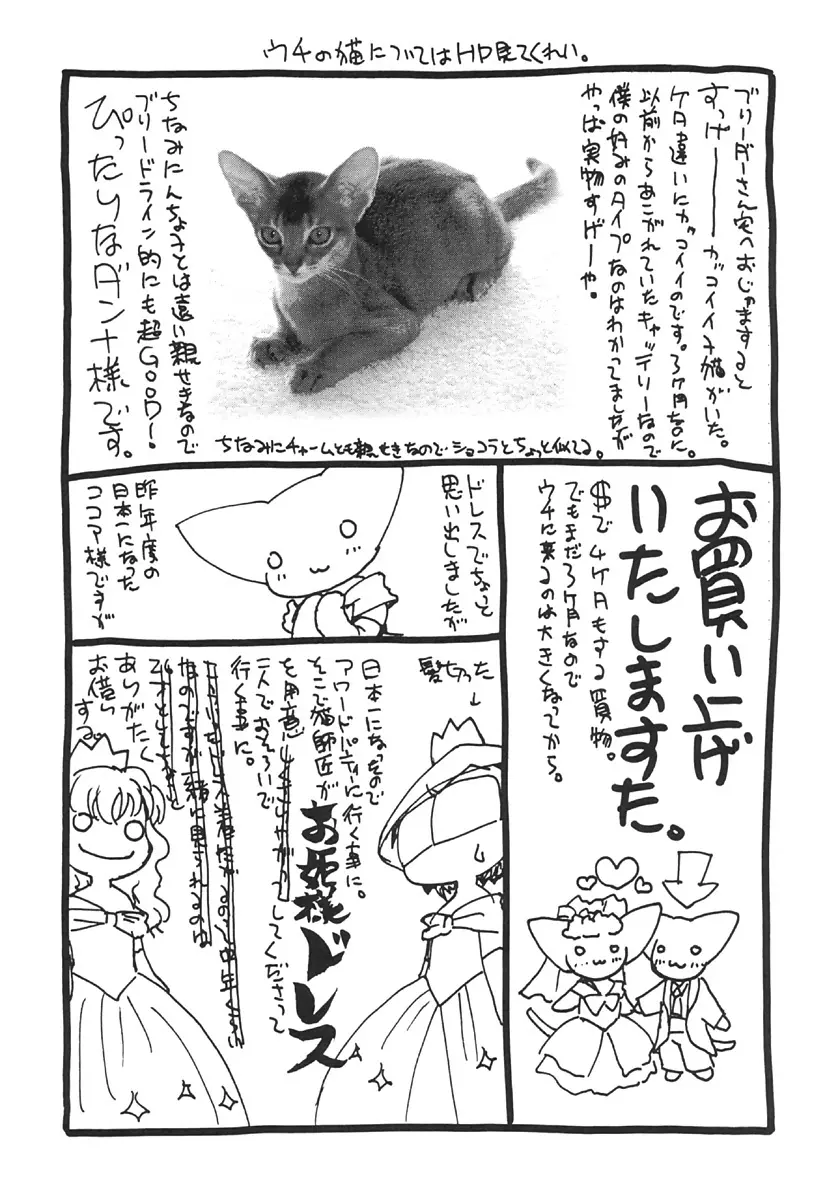 ウチの猫についてはHP見てくれい。
ブリーダーさん宅へおじゃますると
すっげーーーガッコイイ子猫がいた。
ケタ違いにガッコイイのです。3ヶ月なのに。
以前からあこがれていたキャッテリーなので
僕の好みのタイプなのはわかってましたが
やっぱ実物すげーや。
ちなみにんちょことは遠い親せきなので
ブリードライン的にも超GOOD!
ぴったりなダンナ様です。
ちなみにチャームとも親せきなのでショコラとちょっと似てる。
お買い上げ
いたしますた。
$で4ケタもする買物。
でもまだ3ヶ月なので
ウチに来るのは大きくなってから。
ドレスでちょっと
思い出しましたが
昨年度の
日本一になった
ココア様ですが
髪切った
日本一になったので
アワードパーティーに行く事に。
そこで猫師匠が
お姫様ドレス
を用意してくださって
二人でおそろいで
行く事に。
ありがたく
お借りする。